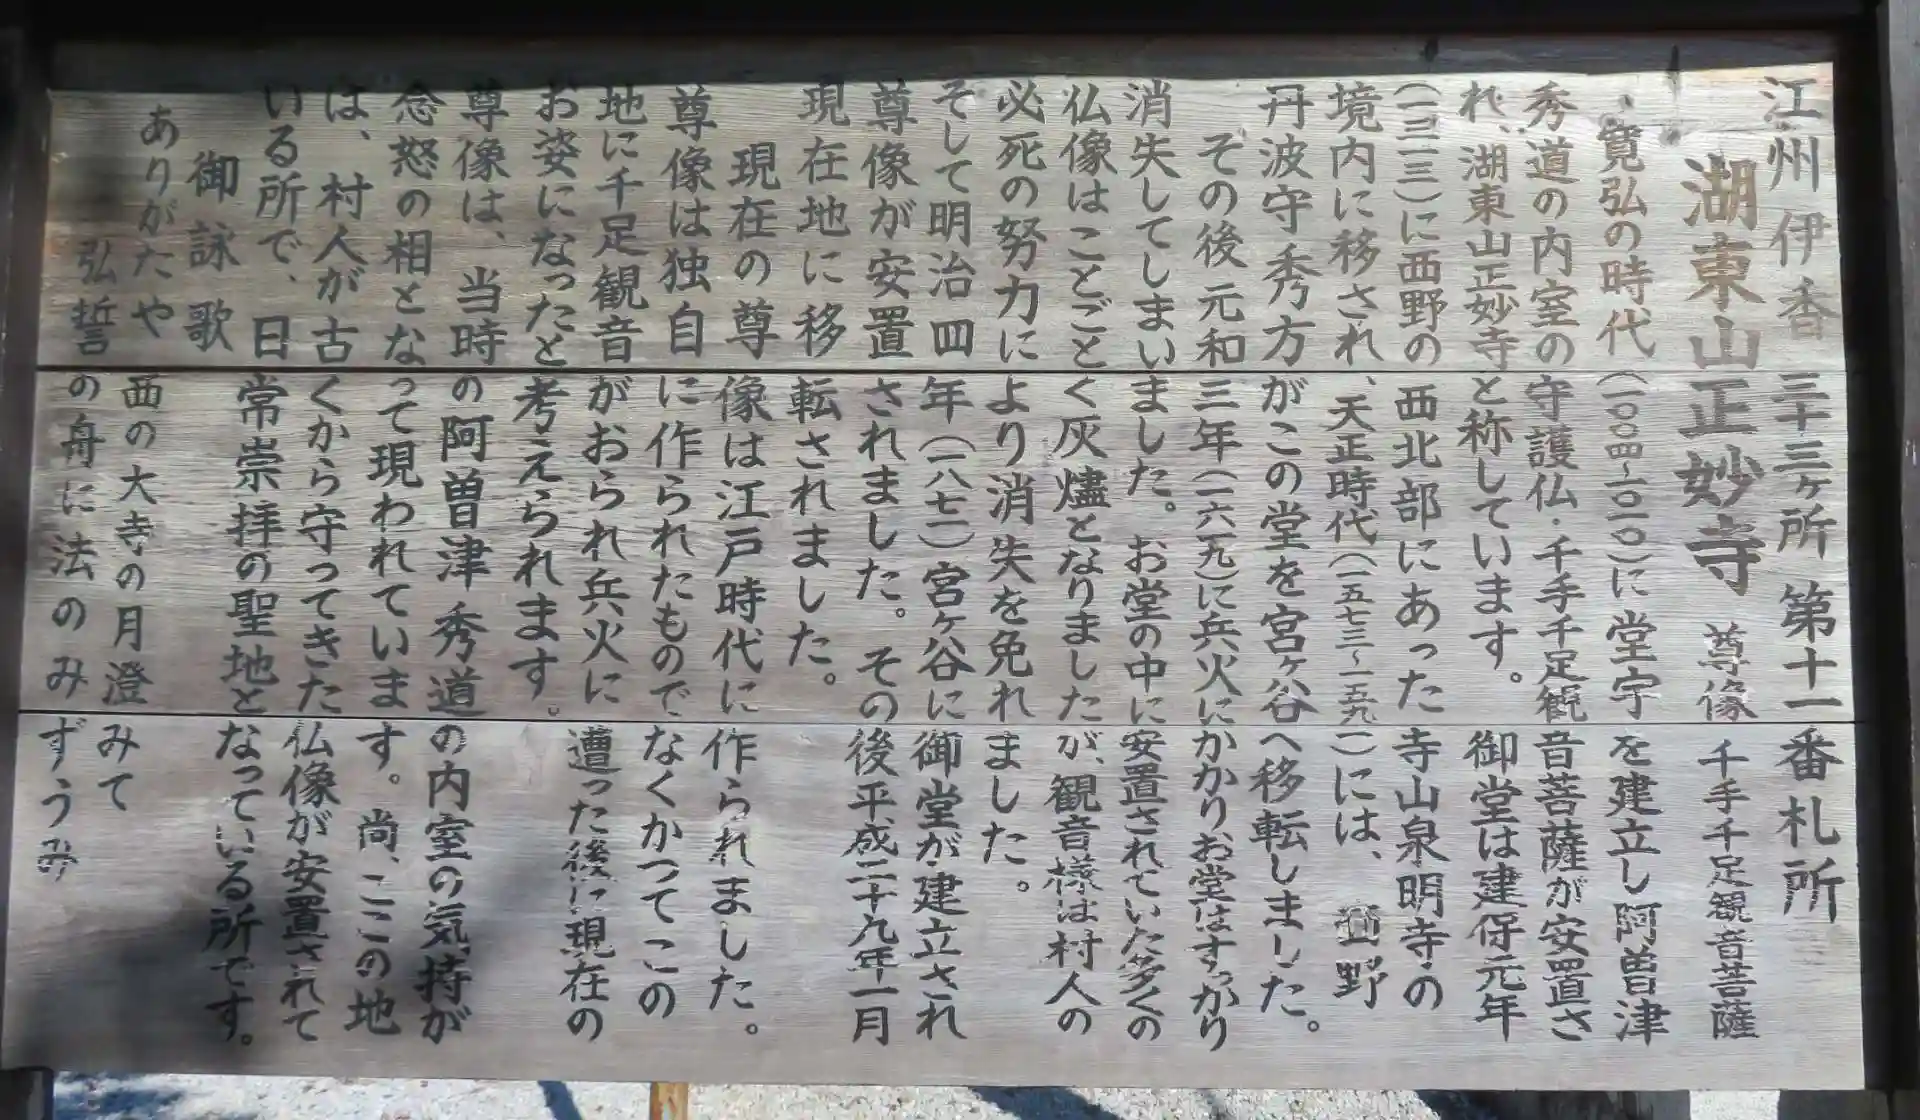 江州伊香三十三ヶ所第十一番札所
湖東山正妙寺 尊像 千手千足観音菩薩
、寛弘の時代(一〇〇四~一〇一〇)に堂宇を建立し阿曽津
秀道の内室の守護仏・千手千足観音菩薩が安置さ
れ、湖東山正妙寺と称しています。御堂は建保元年
(一二一三)に西野の西北部にあった寺山泉明寺の
境内に移され、天正時代(一五七三~一五九一)には、西野
丹波守秀方がこの堂を宮ヶ谷へ移転しました。
その後元和三年(一六一九)に兵火にかかりお堂はすっかり
消失してしまいました。お堂の中に安置されていた多くの
仏像はことごとく灰燼となりましたが、観音様は村人の
必死の努力により消失を免れました。
そして明治四年(一八七一)宮ヶ谷に御堂が建立され
尊像が安置されました。その後平成二十九年一月
現在地に移転されました。
現在の尊像は江戸時代に作られました。
尊像は独自に作られたもので、なくかつてこの
地に千足観音がおられ兵火に遭った後に現在の
お姿になったと考えられます。
尊像は、当時の阿曽津秀道の内室の気持が
念怒の相となって現われています。尚、ここの地
は、村人が古くから守ってきた仏像が安置されて
いる所で、日常崇拝の聖地となっている所です。
御詠歌
ありがたや西の大寺の月澄みて
弘誓の舟に法のみずうみ